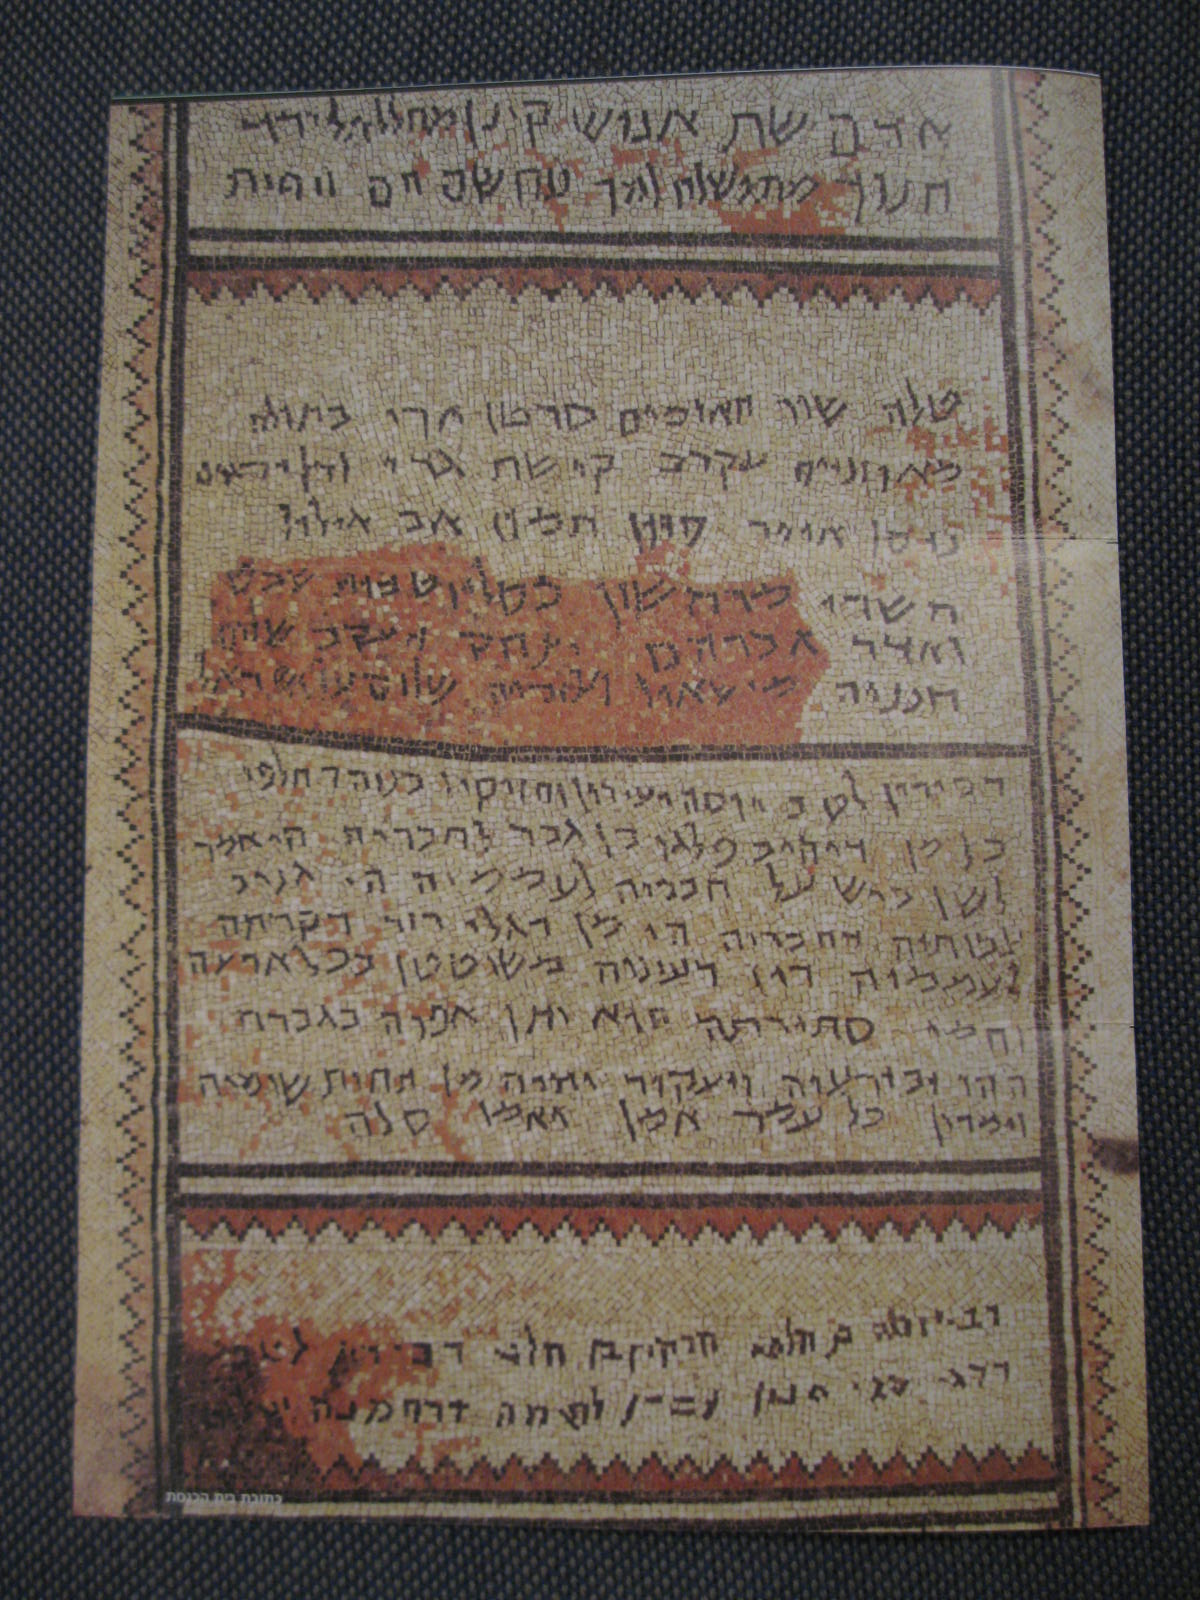 אדם שת אנוש קינן מהללאל ירד
חנוך מתושלח למך נוח שם חם ויפית
טלה שור תאומים סרטן ארי בתולה
מאוזניים עקרב קישת גדי ודלי
ניסן אייר סיון תמוז אב אילול
תשרי מרחשון כסליו טבית שבט
ואדר אברהם יצחק ויעקב שלום
חנניה מישאל ועזריה שלום על ישראל
דכירין לטב יוסה ועזרון וחזיקיו בנוה דחלפי
כל מן דיהיב פלגו בן גבר לחבריה הי אמר
לשן ביש על חבריה לעממיה הי גניב
צבותיה דחבריה הי מן דגלי רזה דקרתה
לעממיה דין דעינוה משוטטן בכל ארעה
וחמי סתירתה הוא יתן אפוה בגברה
ההו ובזרעיה ויעקור יתיה מן תחות שומיה
וימרון כל עמה אמן ואמן סלה
רבי יוסה בן חלפי חזקיו בן חלפי דכירין לטב
סגי הנון עבדו לשמה דרחמנה שלום
כתובת בית הכנסת